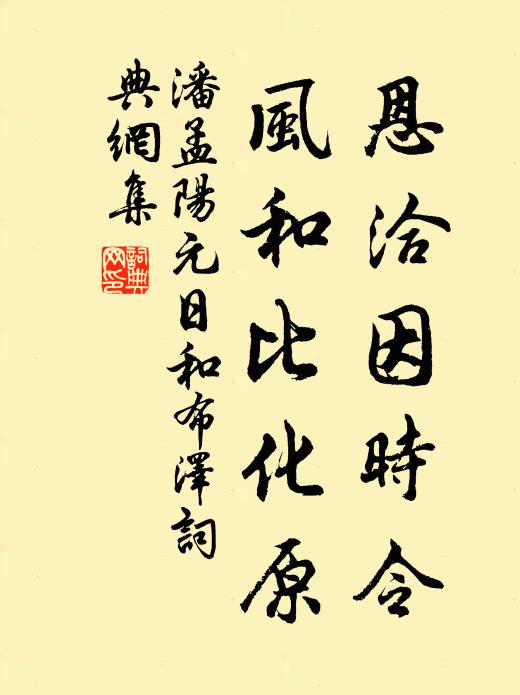 恩洽因時令
風和比化原
潘孟陽元日和布澤詞
典網集
詞典網印